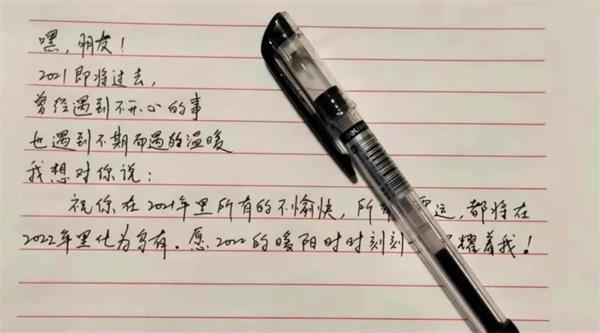 嘿,朋友!
2021即将过去,
曾经遇到不开心的事
也遇到不期而遇的温暖
我想对你说:
祝你在2021年里所有的不愉快,所有 运,都将在
2022年里化为乌有.愿2022的暖阳时时刻刻 耀着我!